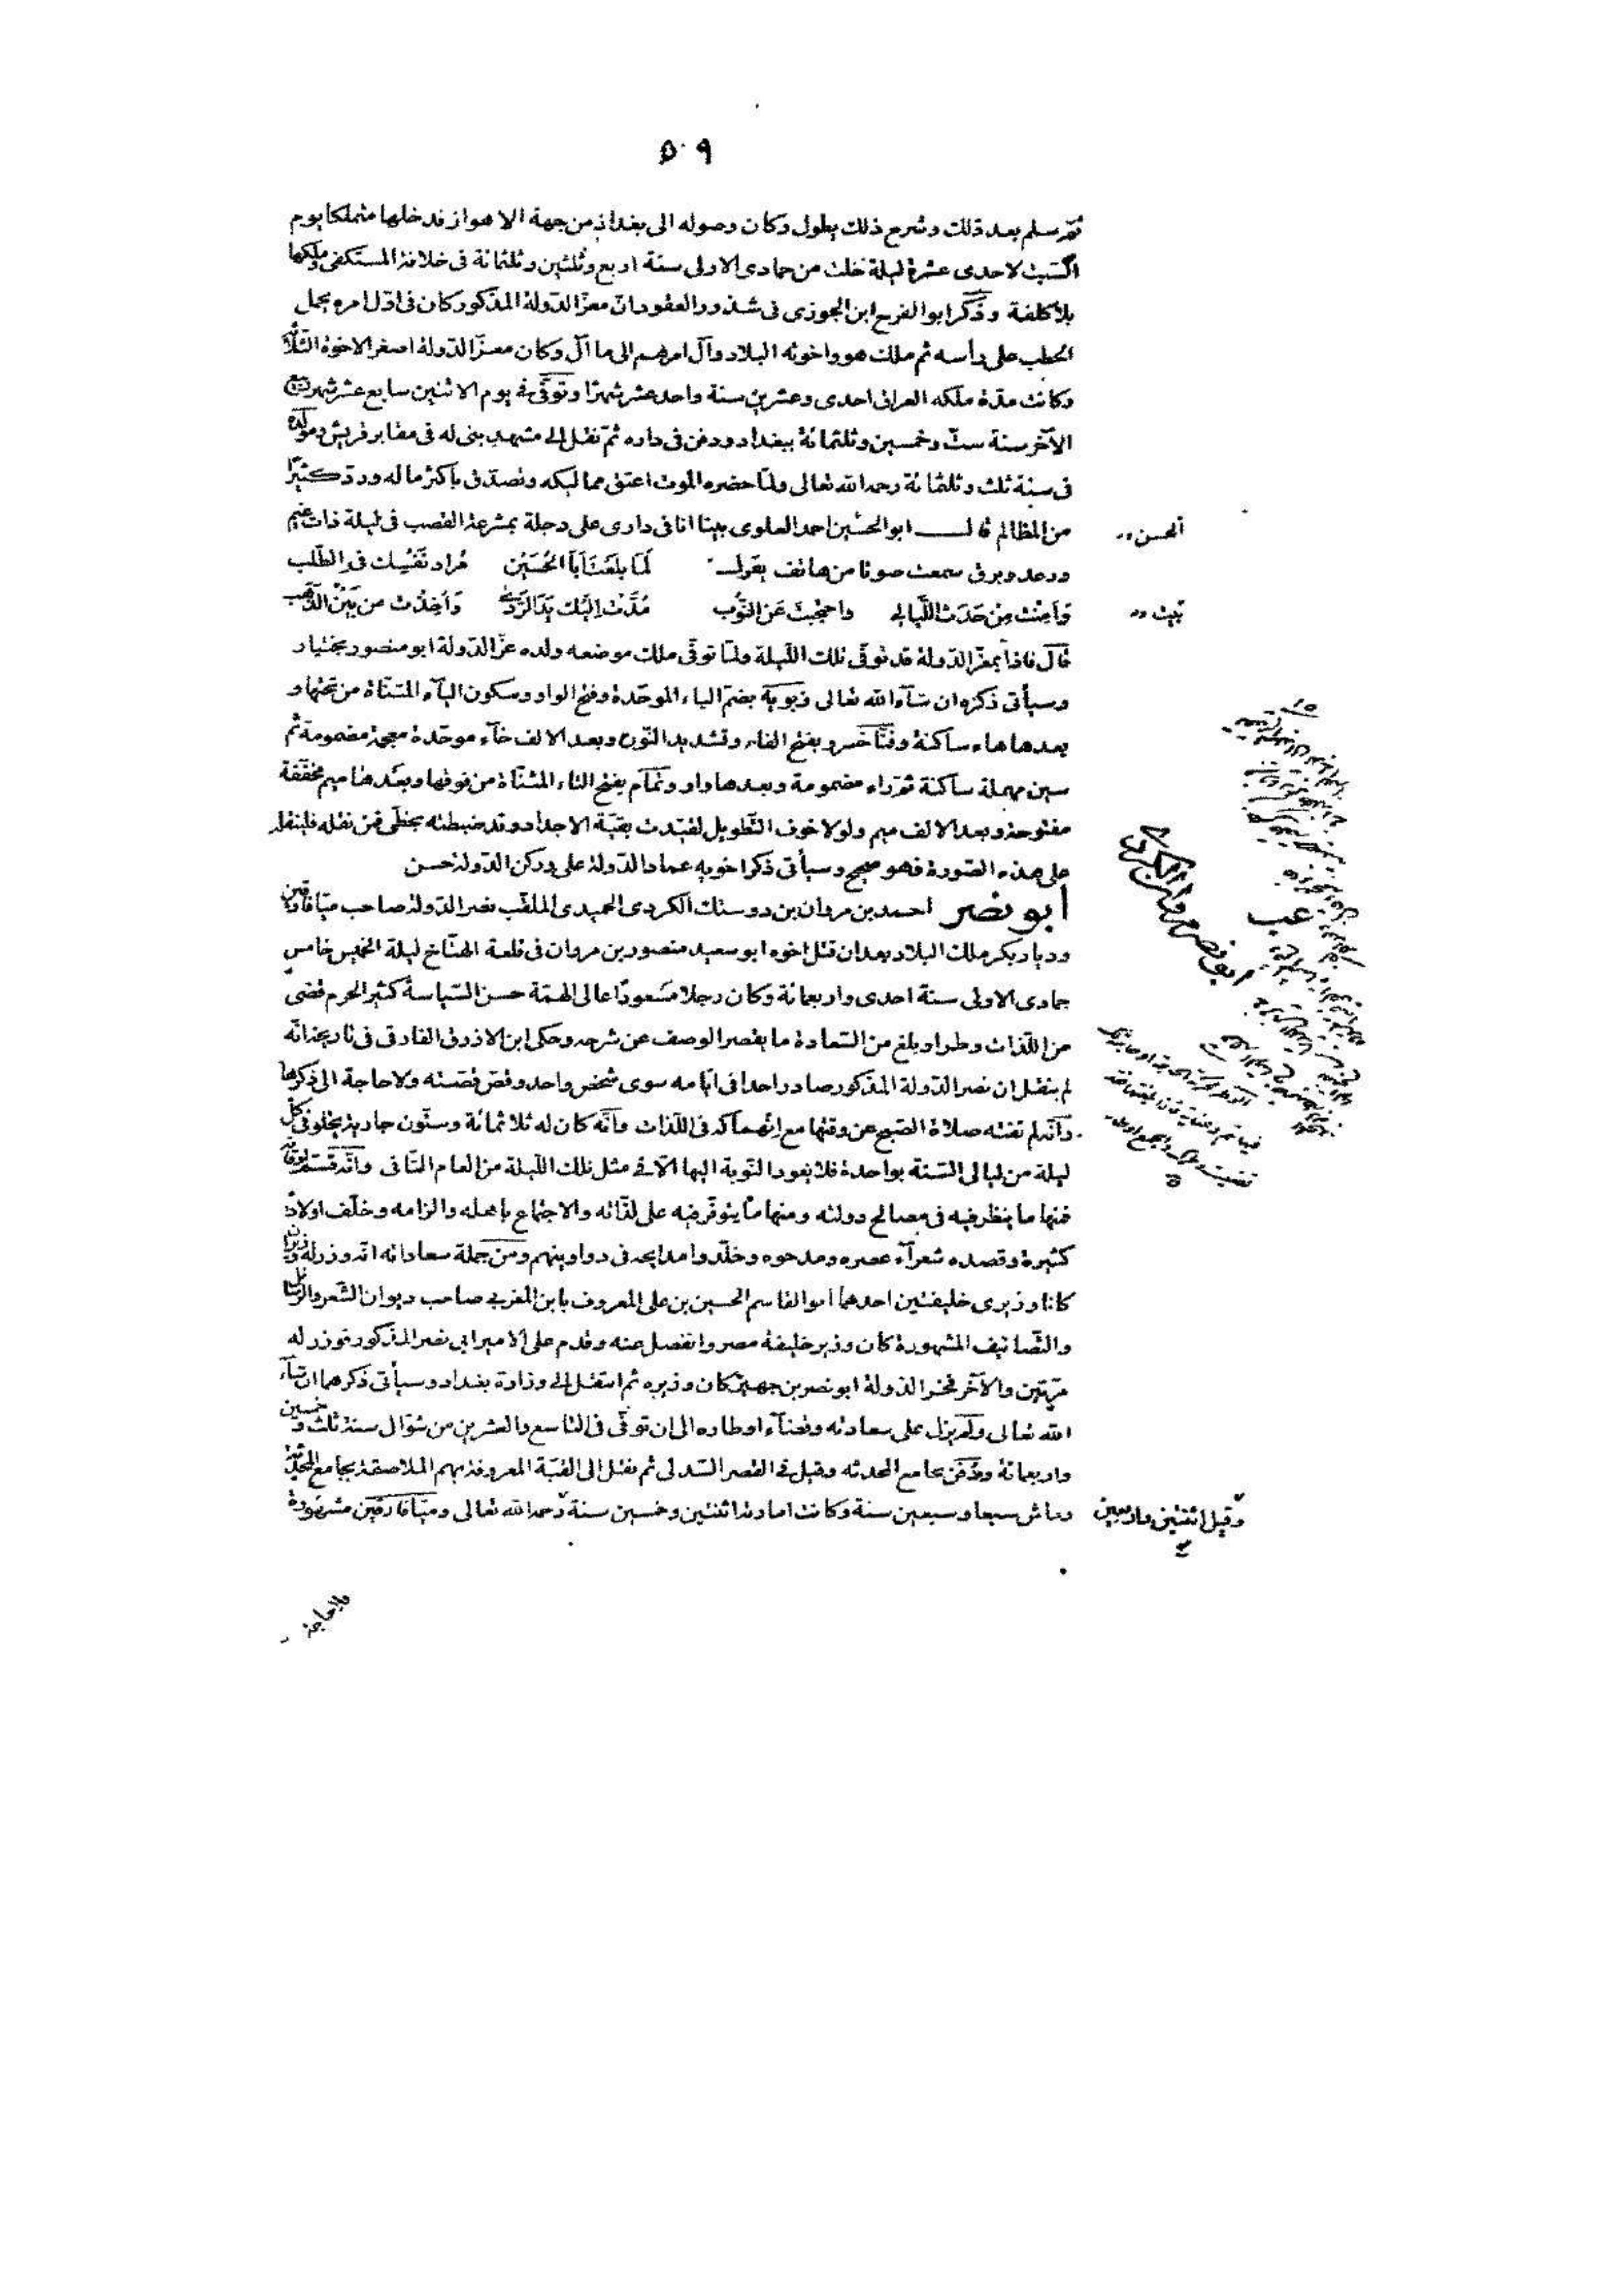 ٥٠٩
ثم سلم بعد ذلك وشرح ذلك يطول وكان وصوله الى بغداد من جهة الاهواز فدخلها متملكا يوم
السّبت لاحدى عشرة ليلة خلت من جمادى الاولى سنة اربع وثلثين وثلثمائة فى خلافة المستكفى وملكها
بلا كلفة وذكر ابو الفرج ابن الجوزى فى شذور العقود انّ معزّ الدّولة المذكور كان فى اوّل امره يحمل
الحطب على رأسه ثم ملك هو واخوته البلاد وآل امرهم الى ما آل وكان معزّ الدّولة اصغر الاخوة الثلاثة
وكانت مدّة ملكه العراق احدى وعشرين سنة واحد عشر شهرًا وتوفّى فى يوم الاثنين سابع عشر شهر ربيع
الآخر سنة ستّ وخمسين وثلثمائة ببغداد ودفن فى داره ثمّ نقل الى مشهد بنى له فى مقابر قريش ومولده
فى سنة ثلث وثلثمائة رحمه الله تعالى ولمّا حضره الموت اعتق مماليكه وتصدّق باكثر ماله وردّ كثيرًا
من المظالم قال ابو الحسين احمد العلوى بينا انا فى دارى على دجلة بمشرعة القصب فى ليلة ذات غيم
الحسن
ورعد وبرق سمعت صوتا من هاتف يقول لَمّا بلَغتَ اَبا الحُسَيْن مُراد نَفْسِك فى الطّلب
وَاَمِنْت مِنْ حَدَث اللّيالى واحتجبت عَن النُّوَب مُدَّتْ اِلَيْك يَدُ الرَّدى وَاُخِذْت من بَيْن الذَّهَب
بيت
قال فاذا بمعزّ الدّولة قد توفّى تلك اللّيلة ولمّا توفّى ملك موضعه ولده عزّ الدّولة ابو منصور بختيار
وسيأتى ذكره ان شآء الله تعالى وبُويَه بضمّ الباء الموحّدة وفتح الواو وسكون اليآء المثنّاة من تحتها و
بعدها هاء ساكنة وفنّاخسرو بفتح الفاء وتشديد النّون وبعد الالف خآء موحّدة معجمة مضمومة ثم
سين مهملة ساكنة ثمّ راء مضمومة وبعدها واو وتَمام بفتح التاء المثنّاة من فوقها وبَعدها ميم مخفّفة
مفتوحة وبعد الالف ميم ولولا خوف التّطويل لقيّدت بقيّة الاجداد وقد ضبطته بخطّى فمن نقله فلينقله
على هذه الصّورة فهو صحيح وسيأتى ذكر اخويه عماد الدّولة على وركن الدّولة حسن
أبو نصر احمد بن مروان بن دوستك الكردى الحميدى الملقّب نصر الدّولة صاحب ميّافارقين
ابو نصر مروان الكردى
وديار بكر ملك البلاد بعد ان قتل اخوه ابو سعيد منصور بن مروان فى قلعة الهتّاخ ليلة الخميس خامس
جمادى الاولى سنة احدى واربعمائة وكان رجلا مسعودًا عالى الهمّة حسن السّياسة كثير الحزم قضى
من اللّذات وطرا وبلغ من السّعادة ما يقصر الوصف عن شرحه وحكى ابن الازرق الفارقى فى تاريخه انّه
لم ينقل ان نصر الدّولة المذكور صادر احدا فى ايّامه سوى شخص واحد وقصّ قصّته ولا حاجة الى ذكرها
وانّه لم تفته صلاة الصّبح عن وقتها مع انهماكه فى اللّذات وانّه كان له ثلاثمائة وستّون جارية يخلو فى كلّ
ليلة من ليالى السّنة بواحدة فلا يعود النّوبة اليها الّا فى مثل تلك اللّيلة من العام الثّانى وانّه قسّم اوقاته
فمنها ما ينظر فيه فى مصالح دولته ومنها ما يتوفّر فيه على لذّاته والاجتماع باهله والزامه وخلّف اولادًا
كثيرة وقصده شعرآء عصره ومدحوه وخلّدوا مدايحه فى دواوينهم ومن جملة سعاداته انّه وزر له وزيران
كانا وزيرى خليفتين احدهما ابو القاسم الحسين بن على المعروف بابن المغربى صاحب ديوان الشّعر والرّسائل
والتّصانيف المشهورة كان وزير خليفة مصر وانفصل عنه وقدم على الامير ابى نصر المذكور فوزر له
مرّتين والآخر فخر الدّولة ابو نصر بن جهير كان وزيره ثم انتقل الى وزارة بغداد وسيأتى ذكرهما ان شآء
الله تعالى ولم يزل على سعادته وقضآء اوطاره الى ان توفّى فى التاسع والعشرين من شوّال سنة ثلث وخمسين
واربعمائة ودُفن بجامع المحدثه وقيل فى القصر السّدلى ثم نقل الى القبّة المعروفة بهم الملاصقة بجامع المحدثة
وعاش سبعا وسبعين سنة وكانت امارته اثنتين وخمسين سنة رحمه الله تعالى وميّافارقين مشهورة
وقيل اثنتين واربعين